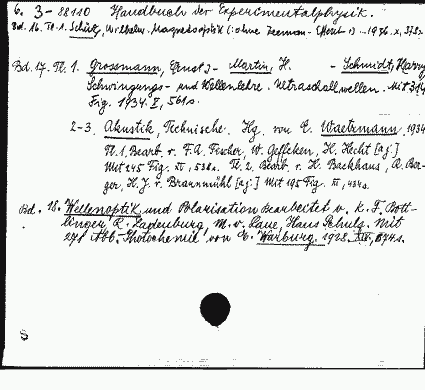 6. 3-88110 Handbuch der Experimentalphysik.
Bd. 16. Tl. 1. Schütz, Wilhelm. Magnetooptik (ohne Zeeman-Effekt.) 1936. X, 378 s.
Bd. 17. Tl. 1. Grossmann, Ernst - Martin, H. - Schmidt, Harry
Schwingungs- und Wellenlehre. Ultraschallwellen. Mit 314
Fig. 1934. X, 561 s.
2-3. Akustik, Technische. Hg. von E. Waetzmann. 1934
Tl. 1, Bearb. v. F. A. Fischer, W. Geffcken, H. Hecht [a.j.]
Mit 245 Fig. VI, 538 s. Tl. 2, Bearb. v. H. Backhaus, R. Ber-
ger, H. J. v. Braunmühl [a.j.] Mit 195 Fig. VI, 434 s.
Bd. 18. Wellenoptik und Polarisation Bearbeitet v. K. F. Bott-
linger, R. Ladenburg, M. v. Laue, Hans Schulz. Mit
271 Abb. Photochemie von E. Warburg. 1928. XII, 674 s.
S